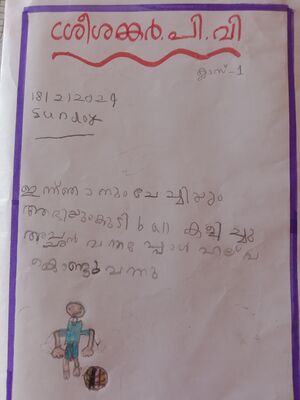 ശ്രീശങ്കർ.പി.വി
ക്ലാസ്-1
18/2/2024
Sunday
ഇന്ന് ഞാനും ചേച്ചിയും
അഭിയുംകൂടി ball കളിച്ചു
അച്ഛൻ വന്നപ്പോൾ
കൊണ്ടുവന്നു